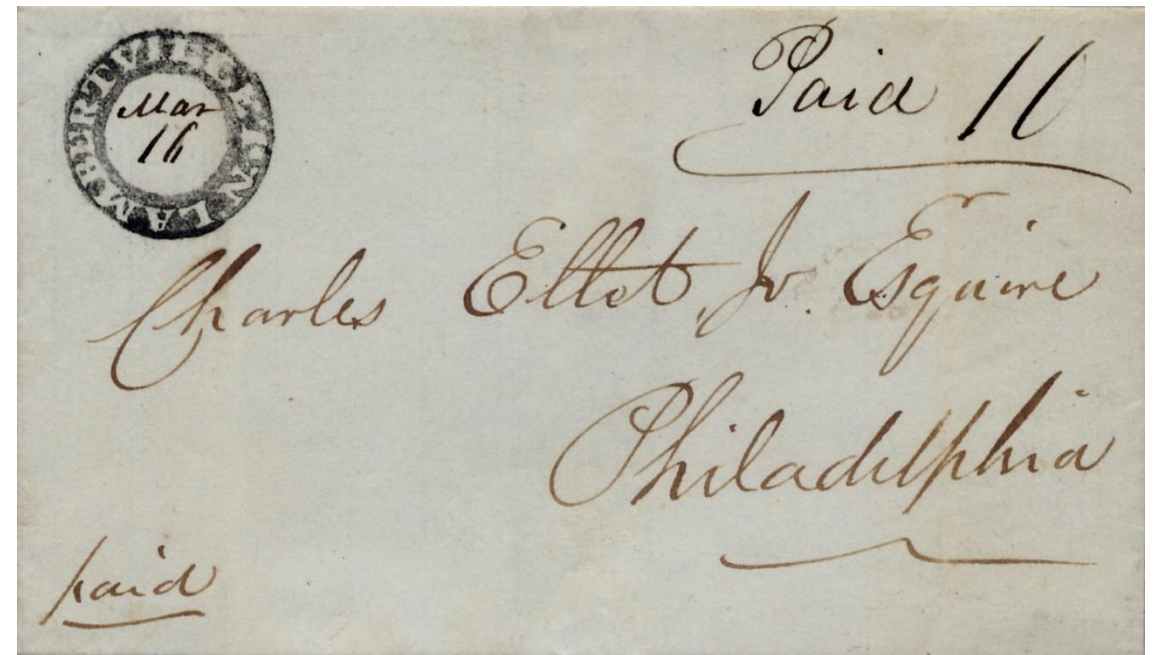 LAMBERTVILLE J.N
Mar
16
Paid 10
Charles Ellet, Jr. Esquire
Philadelphia
paid